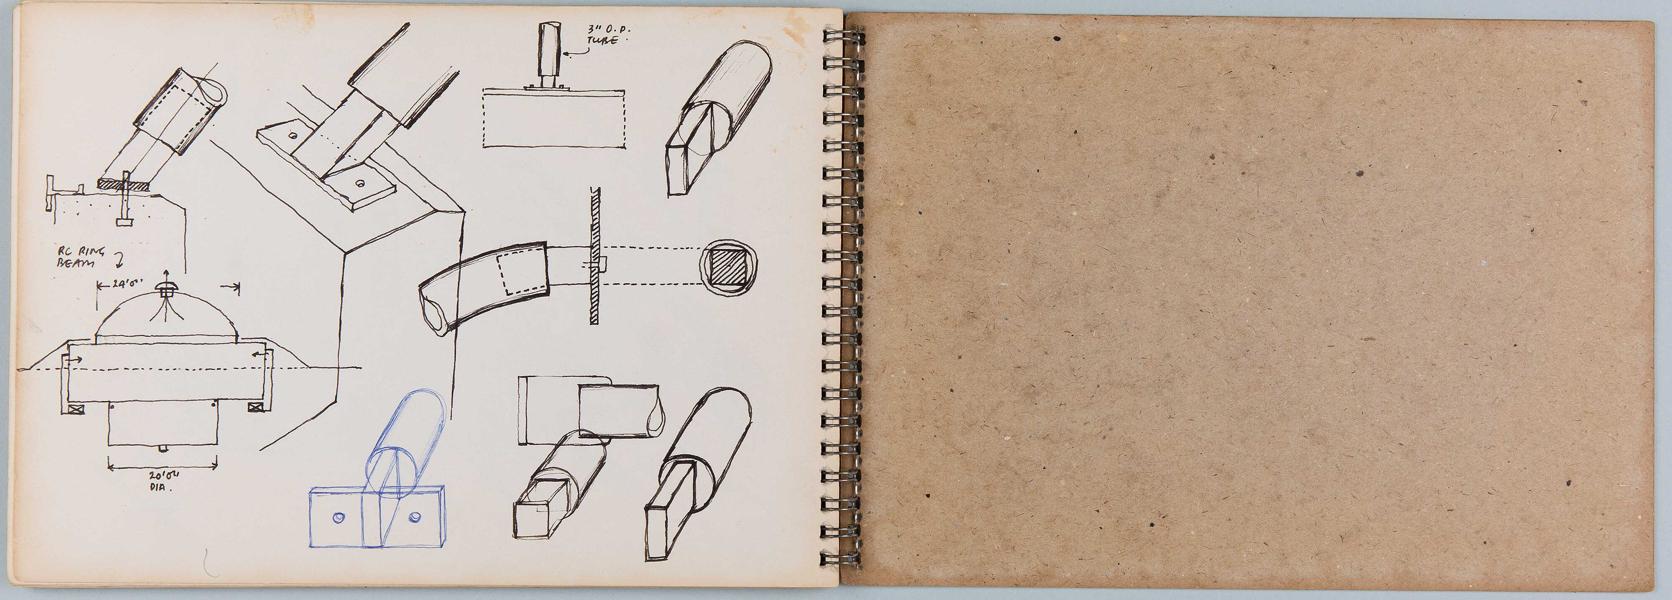 3" O.D.
TUBE.
RC RING
BEAM
24'0"
20'0"
DIA.